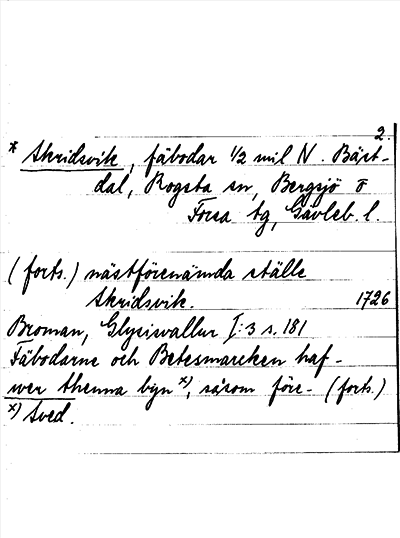 2.
* Skridsvik, fäbodar 1/2 mil N. Bäst-
dal, Rogsta sn, Bergsjö o
Forsa tg, Gävleb. l.
(forts.) nästförenämda ställe
Skridsvik. 1726
Broman, Glysisvallur I:3 s. 181
Fäbodarne och Betesmarcken haf-
wer thenna byn x), såsom före- (forts.)
x) Sved.